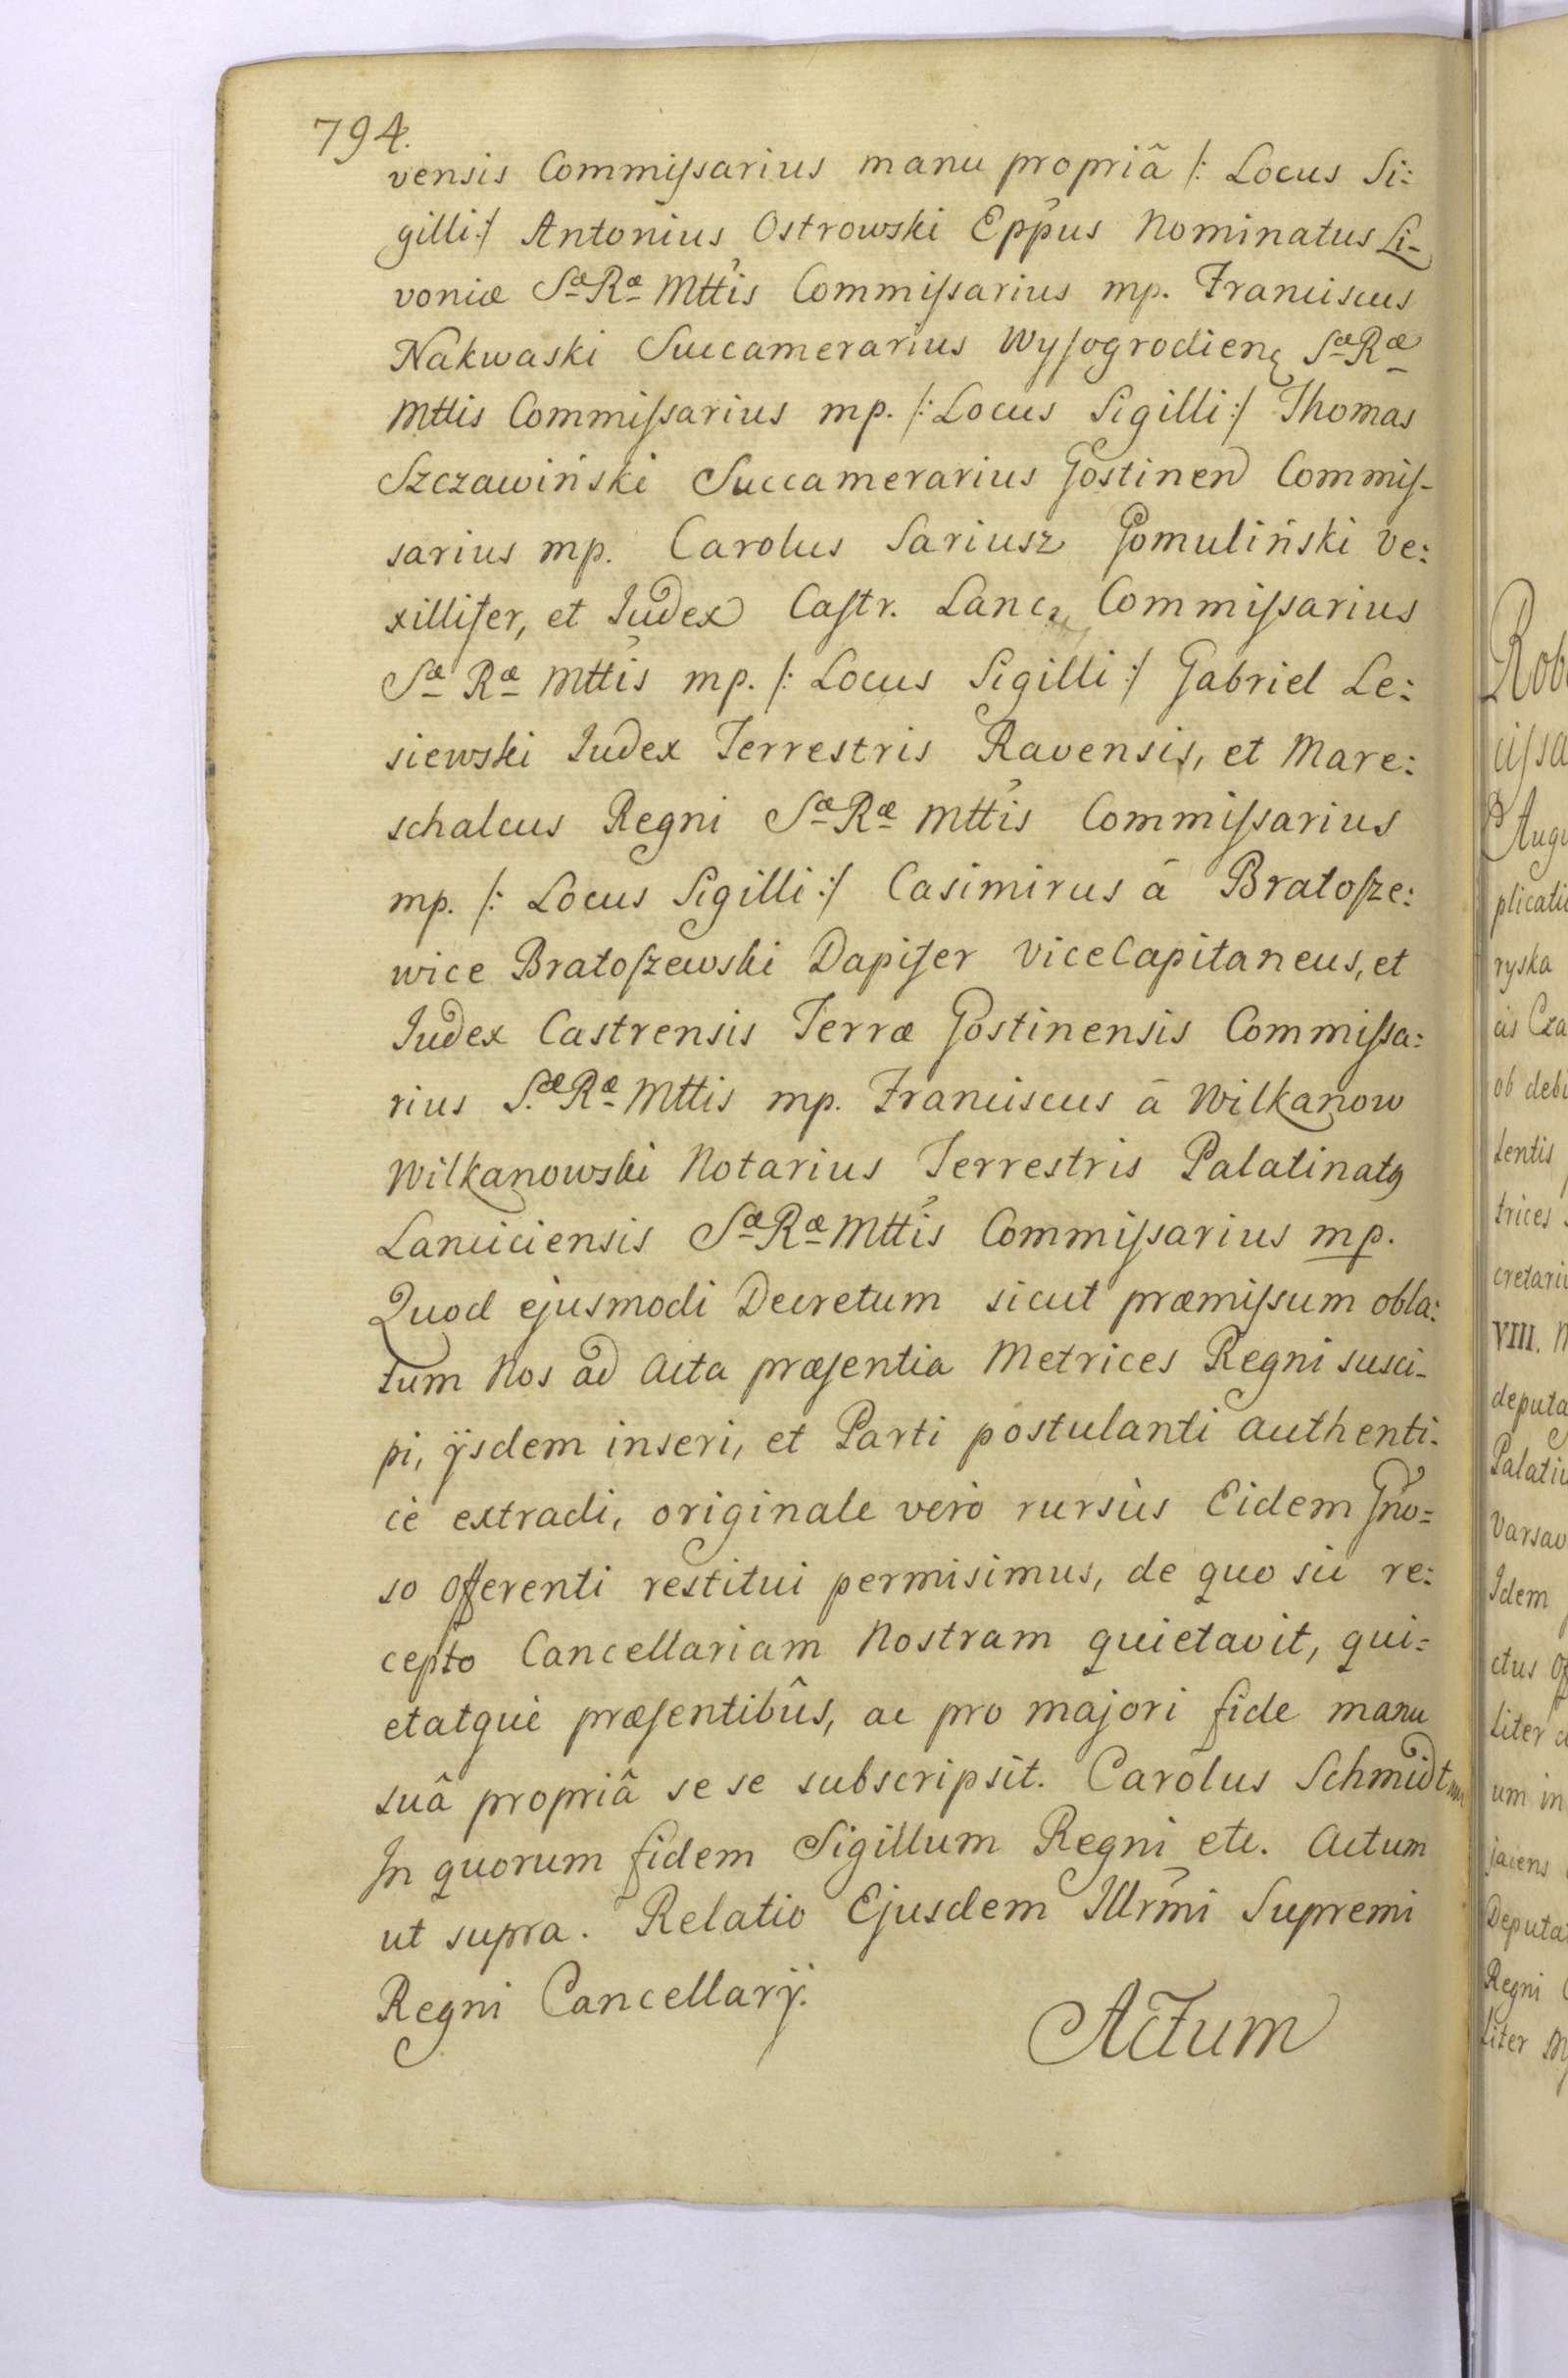 794.
vensis Commiſsarius manu propriâ /: Locus Si:
gilli:/ Antonius Ostrowski Eppus Nominatus Li-
voniæ Sæ Ræ Mttis Commiſsarius mp. Franciscus
Nakwaski Succamerarius Wyſogrodien Sæ Ræ
Mttis Commiſsarius mp. /: Locus Sigilli :/ Thomas
Szczawiński Succamerarius Gostinen Commiſ-
sarius mp. Carolus Sariusz Gomuliński Ve:
xillifer, et Judex Caſtr. Lanc. Commiſsarius
Sæ Ræ Mttis mp. /: Locus Sigilli :/ Gabriel Le:
siewski Judex Terrestris Ravensis, et Mare:
schalcus Regni Sæ Ræ Mttis Commiſsarius
mp. /: Locus Sigilli :/ Casimirus â Bratoſze:
wice Bratoſzewski Dapifer ViceCapitaneus, et
Judex Castrensis Terræ Gostinensis Commiſsa:
rius S.æ Ræ Mttis mp. Franciscus â Wilkanow
Wilkanowski Notarius Terrestris Palatinatꝯ
Lanciciensis Sæ Ræ Mttis Commiſsarius mp.
Quod ejusmodi Decretum sicut præmiſsum obla:
tum Nos ad Acta præſentia Metrices Regni susci-
pi, ijsdem inseri, et Parti postulanti authenti-
cè extradi, originale verò rursùs Eidem Gno=
so Offerenti restitui permisimus, de quo sic re:
cepto Cancellariam Nostram quietavit, qui=
etatquè præſentibûs, ac pro majori fide manu
suâ propriâ se se subscripsit. Carolus Schmidt mp
In quorum fidem Sigillum Regni etc. Actum
ut supra. Relatio Ejusdem Illrmi Supremi
Regni Cancellarij.
Actum